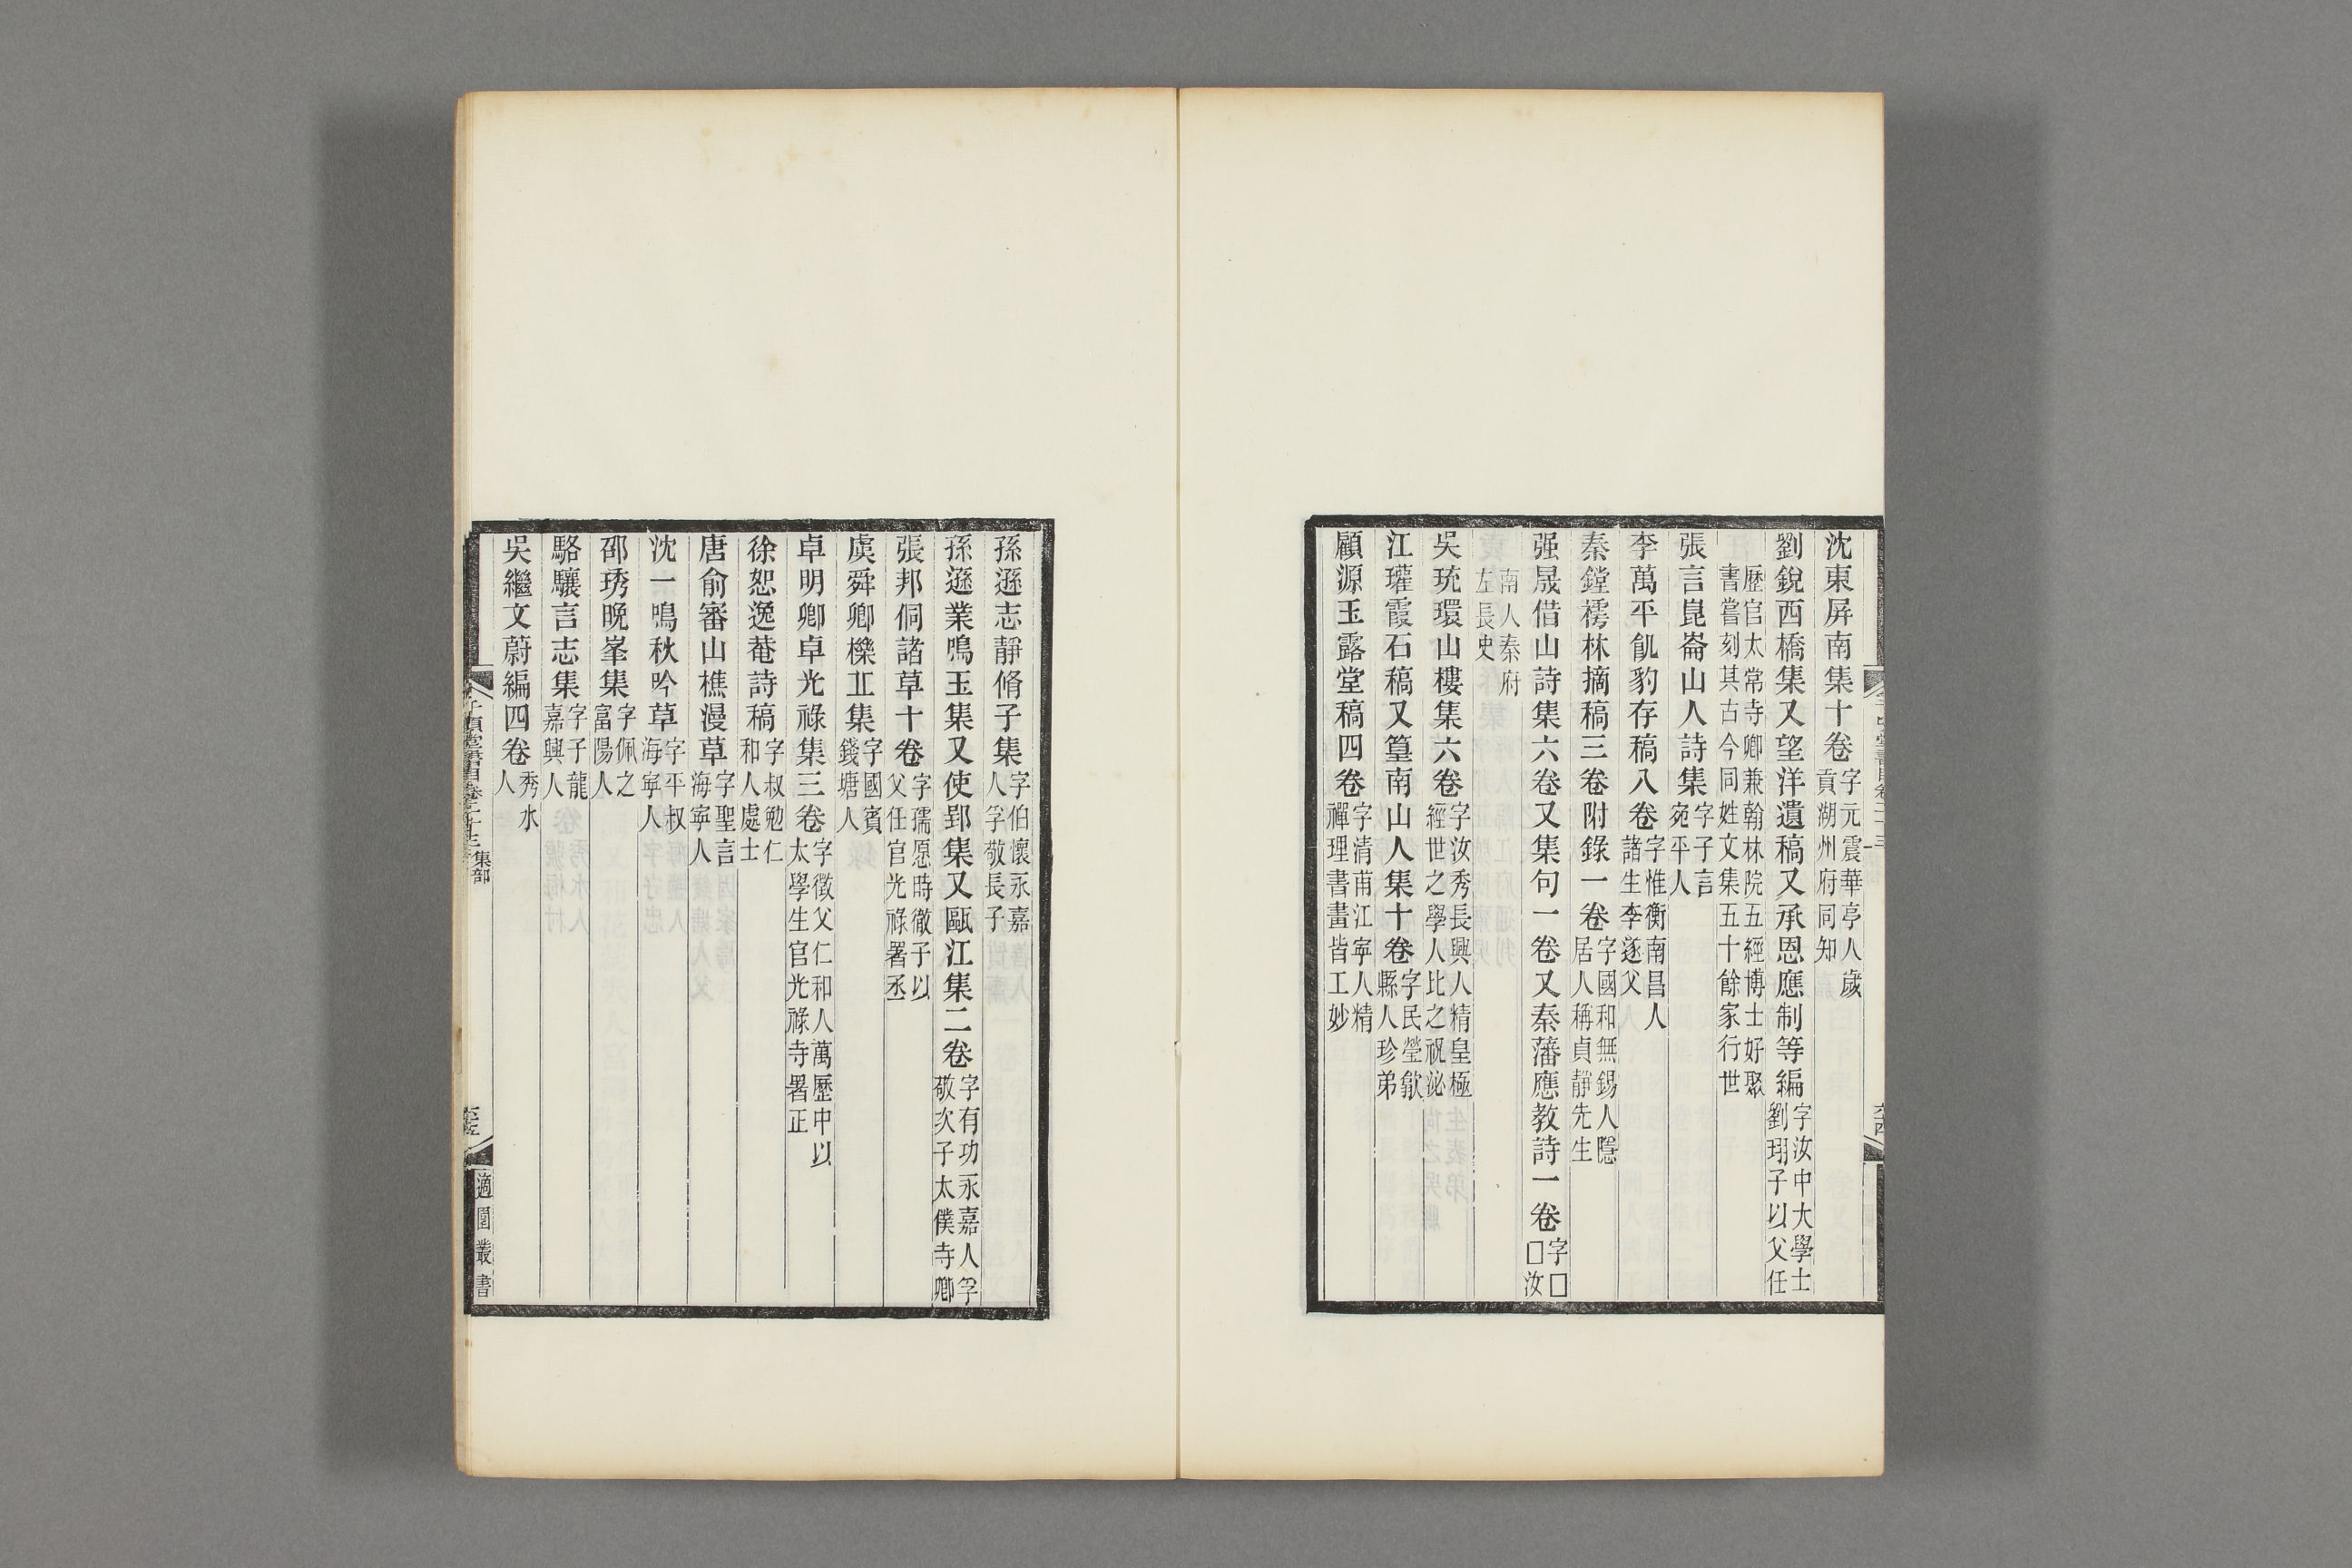 沈東屏南集十卷字元震華亭人歲貢湖州府同知
劉銳西橋集又望洋遺稿又承恩應制等編字汝中大學士劉珝子以父任
歷官太常寺卿兼翰林院五經博士好聚書嘗刻其古今同姓文集五十餘家行世
張言崑崙山人詩集字子言宛平人
李萬平飢豹存稿八卷字惟衡南昌人諸生李遂父
秦鏜樗林摘稿三卷附錄一卷字國和無錫人隱居人稱貞靜先生
强晟借山詩集六卷又集句一卷又秦藩應教詩一卷字□□汝
南人秦府左長史
吳珫環山樓集六卷字汝秀長興人精皇極經世之學人比之祝泌
江瓘霞石稿又篁南山人集十卷字民瑩歙縣人珍弟
顧源玉露堂稿四卷字清甫江寧人精禪理書畫皆工妙
孫遜志靜脩子集字伯懷永嘉人孚敬長子
孫遜業鳴玉集又使郢集又甌江集二卷字有功永嘉人孚敬次子太僕寺卿
張邦侗諸草十卷字孺愿時徹子以父任官光祿署丞
虞舜卿櫟丘集字國賓錢塘人
卓明卿卓光祿集三卷字徵父仁和人萬歷中以太學生官光祿寺署正
徐恕逸菴詩稿字叔勉仁和人處士
唐俞審山樵漫草字聖言海寧人
沈一鳴秋吟草字平叔海寧人
邵琇晚峯集字佩之富陽人
駱驤言志集字子龍嘉興人
吳繼文蔚編四卷秀水人
千頃堂書目卷二十三 集部
六十五
適園叢書